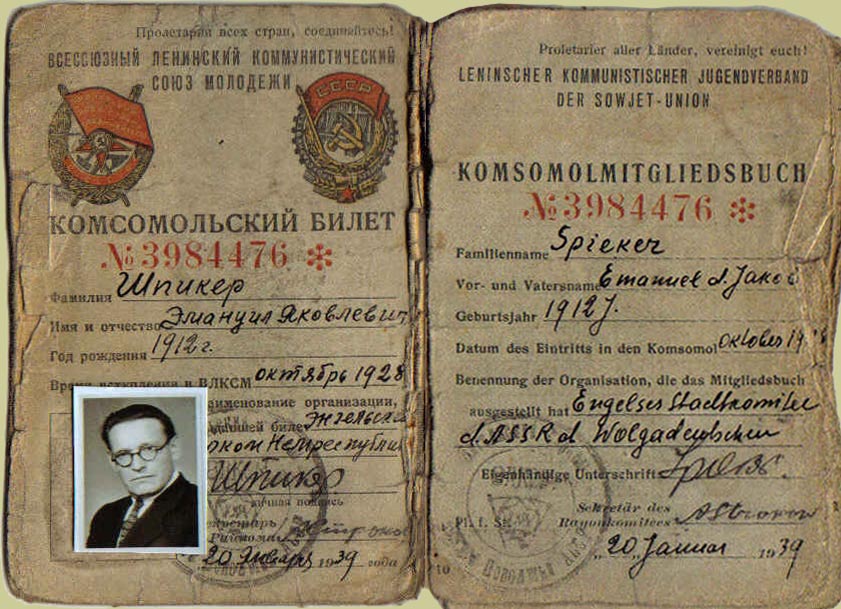 Пролетарии всех стран, соединяйтесь!
ВСЕСОЮЗНЫЙ ЛЕНИНСКИЙ КОММУНИСТИЧЕСКИЙ
СОЮЗ МОЛОДЕЖИ
СССР
КОМСОМОЛЬСКИЙ БИЛЕТ
№3984476 ✻
Фамилия Шпикер
Имя и отчество Эмануил Яковлевич
Год рождения 1912 г.
Время вступления в ВЛКСМ октябрь 1928
наименование организации,
билет Энгельск
Немреспублики
Шпикер
личная подпись
Секретарь
Райкома
„20 Января 1939 года
Proletarier aller Länder, vereinigt euch!
LENINSCHER KOMMUNISTISCHER JUGENDVERBAND
DER SOWJET-UNION
KOMSOMOLMITGLIEDSBUCH
№3984476 ✻
Familienname Spieker
Vor- und Vatersname Emanuel d. Jakob
Geburtsjahr 1912 J.
Datum des Eintritts in den Komsomol Oktober 19
Benennung der Organisation, die das Mitgliedsbuch
ausgestellt hat Engelser Stadtkomitee
d. ASSR d. Wolgadeutschen
Eigenhändige Unterschrift
Sekretär des
Pl. f. St. Rayonkomitees
„20„ Januar 1939